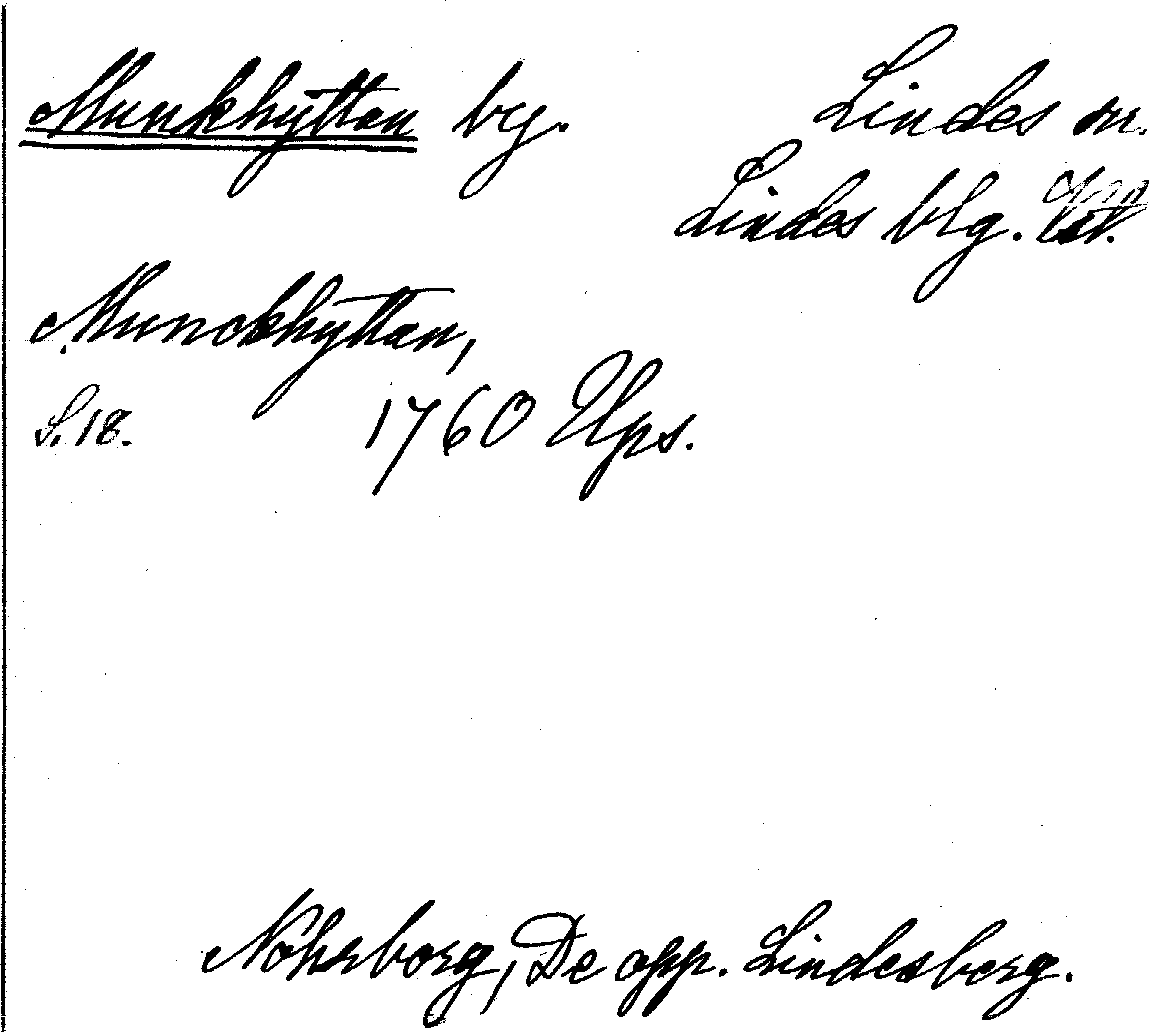 Munkhyttan by. Lindes sn.
Lindes blg.
Munckhyttan,
S. 18. 1760 Ups.
Nohrborg, De opp. Lindesberg.